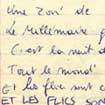 Une zon' de
Le Millenaire
C'est la nuit d
Tout le mond'
Et les flics sont
ET LES FLICS SON